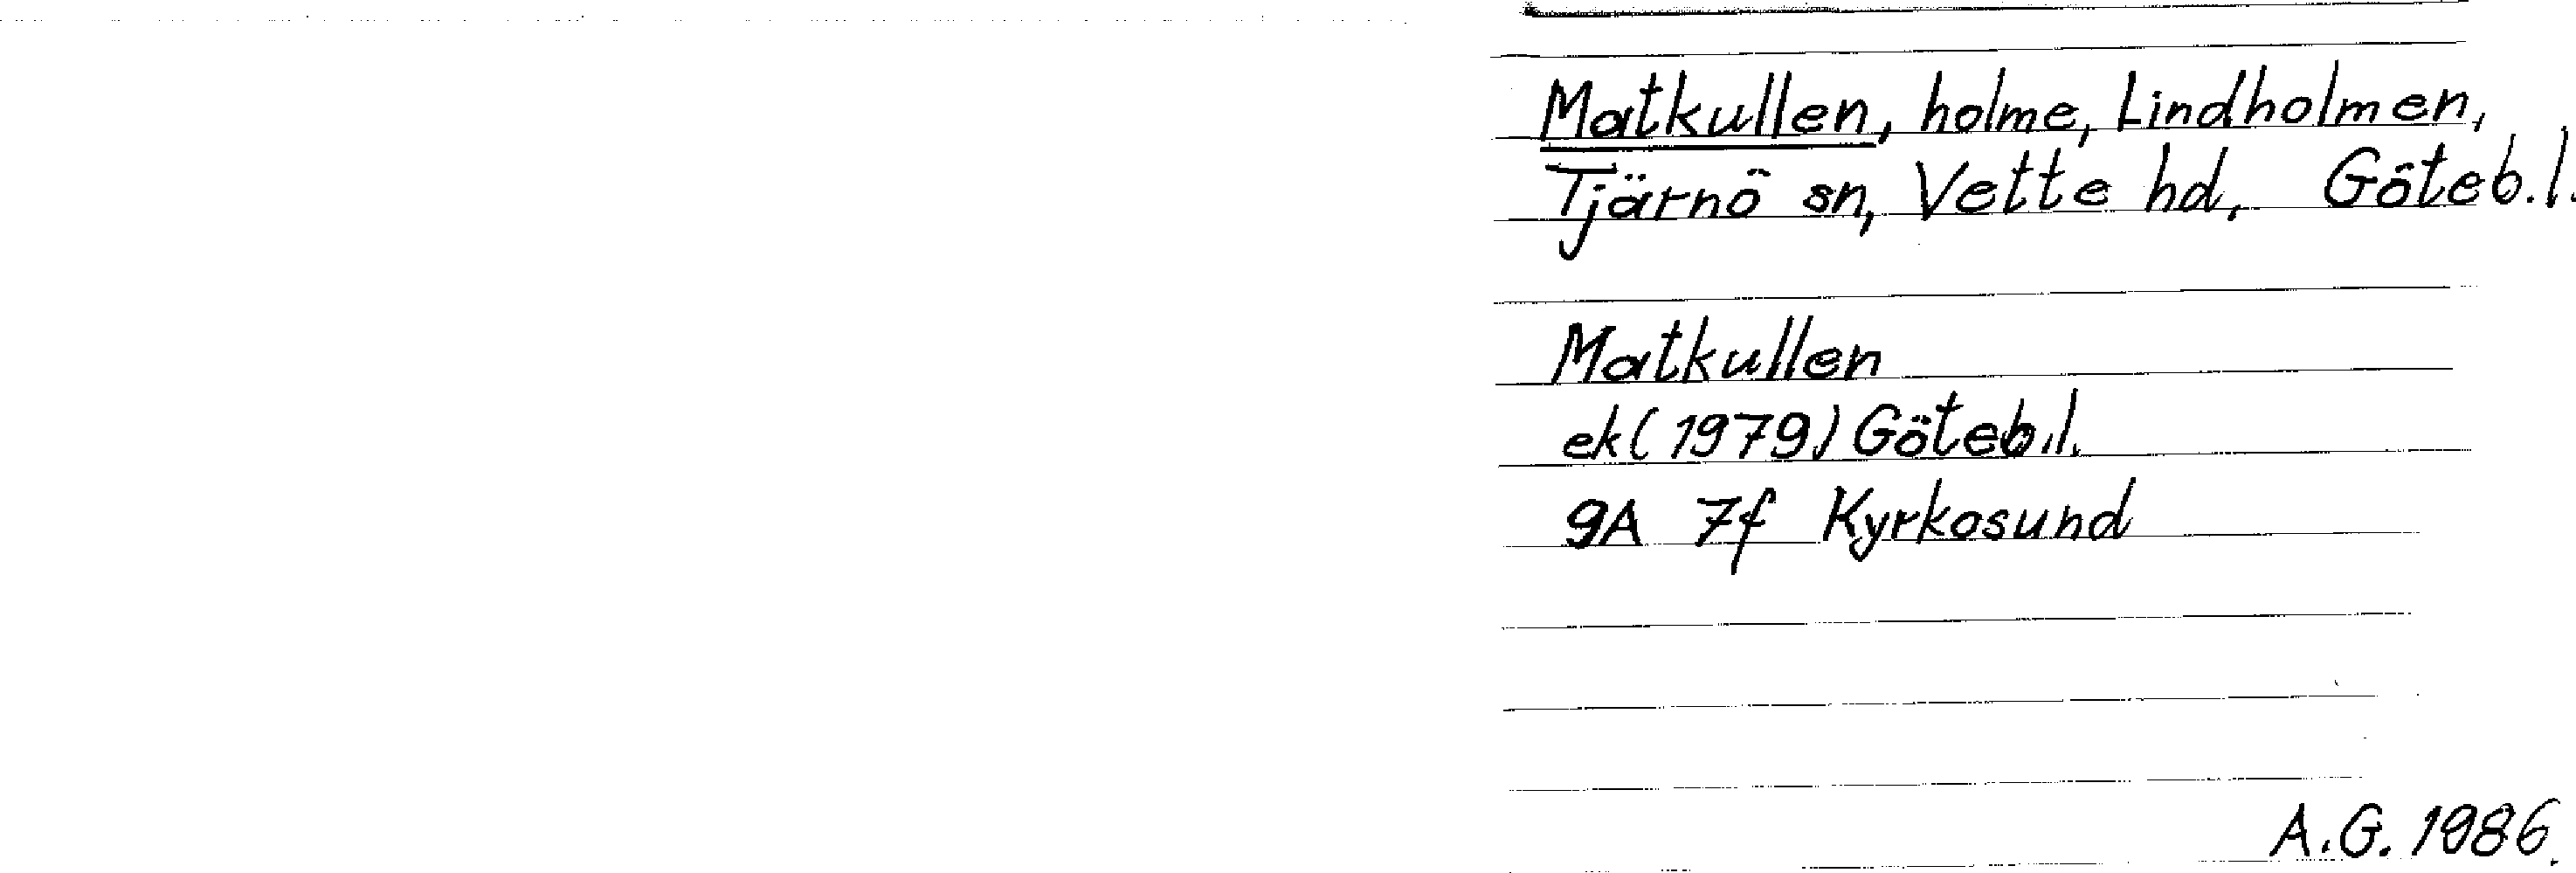 Matkullen, holme, Lindholmen,
Tjärnö sn, Vette hd, Göteb.l.
Matkullen
ek (1979) Göteb.l.
9A 7f Kyrkosund
A.G. 1986.